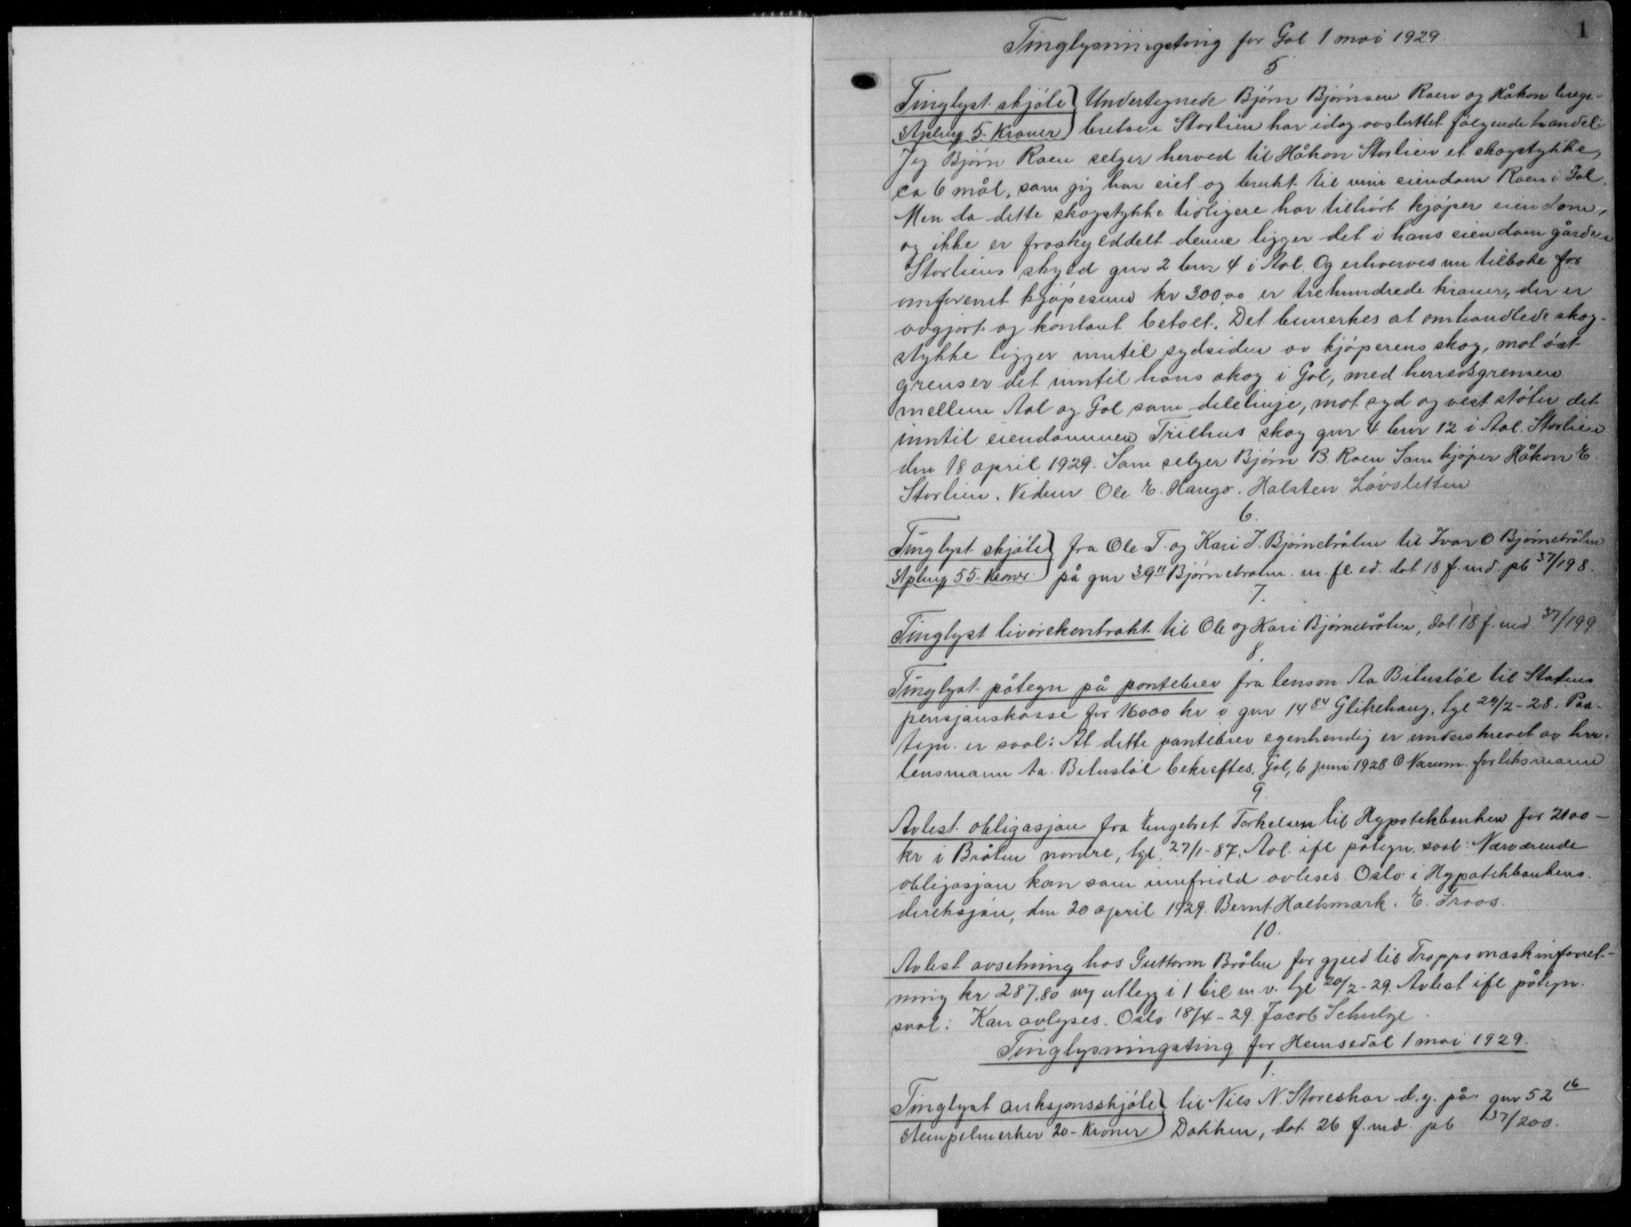 1
Tinglysningsting for Gol 1 mai 1929.
5
Tinglyst skjöte Undertegnede Björn Björnsen Roen og Håkon Enge-
Stpling 5 - Kroner bretsen Storlien har idag avsluttet fölgende handel:
Jeg Björn Roen selger herved til Håkon Storlien et skogstykke,
ca 6 mål, som jeg har eiet og brukt til min eiendom Roen i Gol.
Men da dette skogstykke tidligere har tilhört kjöper eiendom,
og ikke er fraskylddelt denne ligger det i hans eiendom gården
Storliens skyld gnr 2 bnr 4 i Aal. Og erhverves nu tilbake for
omforent kjöpesum kr 300,00 er trehundrede kroner, der er
avgjort og kontant betalt. Det bemerkes at omhandlede skog-
stykke ligger inntil sydsiden av kjöperens skog, mot öst
grenser det inntil hans skog i Gol, med herredsgrensen
mellem Aal og Gol som delelinje, mot syd og vest stöter det
inntil eiendommen Trilhus skog gnr 4 bnr 12 i Aal. Storlien
den 18 april 1929. Som selger Björn B. Roen Som kjöper Håkon E.
Storlien. Vidner Ole E. Haugo. Halsten Lövsletten
6.
Tinglyst skjöte fra Ole T. og Kari J. Björnebråten til Ivar O Björnebråten
Stpling 55 - Kroner på gnr 39 11 Björnebråten m. fl. ed. dat 18 f. md. pb 37/198.
7.
Tinglyst livörekontrakt til Ole og Kari Björnebråten, dat 18 f. md 37/199
8.
Tinglyst påtegn på pantebrev fra lensm. Aa Bitustöl til Statens
pensjonskasse for 16000 kr i gnr 14 84 Glitrehaug, tgl 29/2 - 28. Paa-
tegn. er saal: At dette pantebrev egenhendig er underskrevet av herr
lensmann Aa. Bitustöl bekreftes. Gol, 6 juni 1928 O Narum. forliksmann
9.
Avlest obligasjon fra Engebret Torkelsen til Hypotekbanken for 2100 -
kr i Bråten nordre, tgl. 27/1 - 87. Aol. ifl påtegn. saal: Nærværende
obligasjon kan som innfridd avleses. Oslo i Hypotekbankens
direksjon, den 20 april 1929. Bernt Holtsmark. E. Traas.
10.
Avlest avsetning hos Guttorm Bråten for gjeld til Tropps maskinforret-
ning kr 287,80 utlegg i 1 bil m. v. tgl 20/2 - 29. Avlest ifl påtegn.
saal: Kan avlyses. Oslo 18/4 - 29. Jacob Schulze.
Tinglysningsting for Hemsedal 1 mai 1929.
1.
Tinglyst auksjonsskjöte til Nils N. Storeskar d. y. på gnr 52 16
Stempelmerker 20 - Kroner Dokken, dat 26 f. md. pb 37/200.